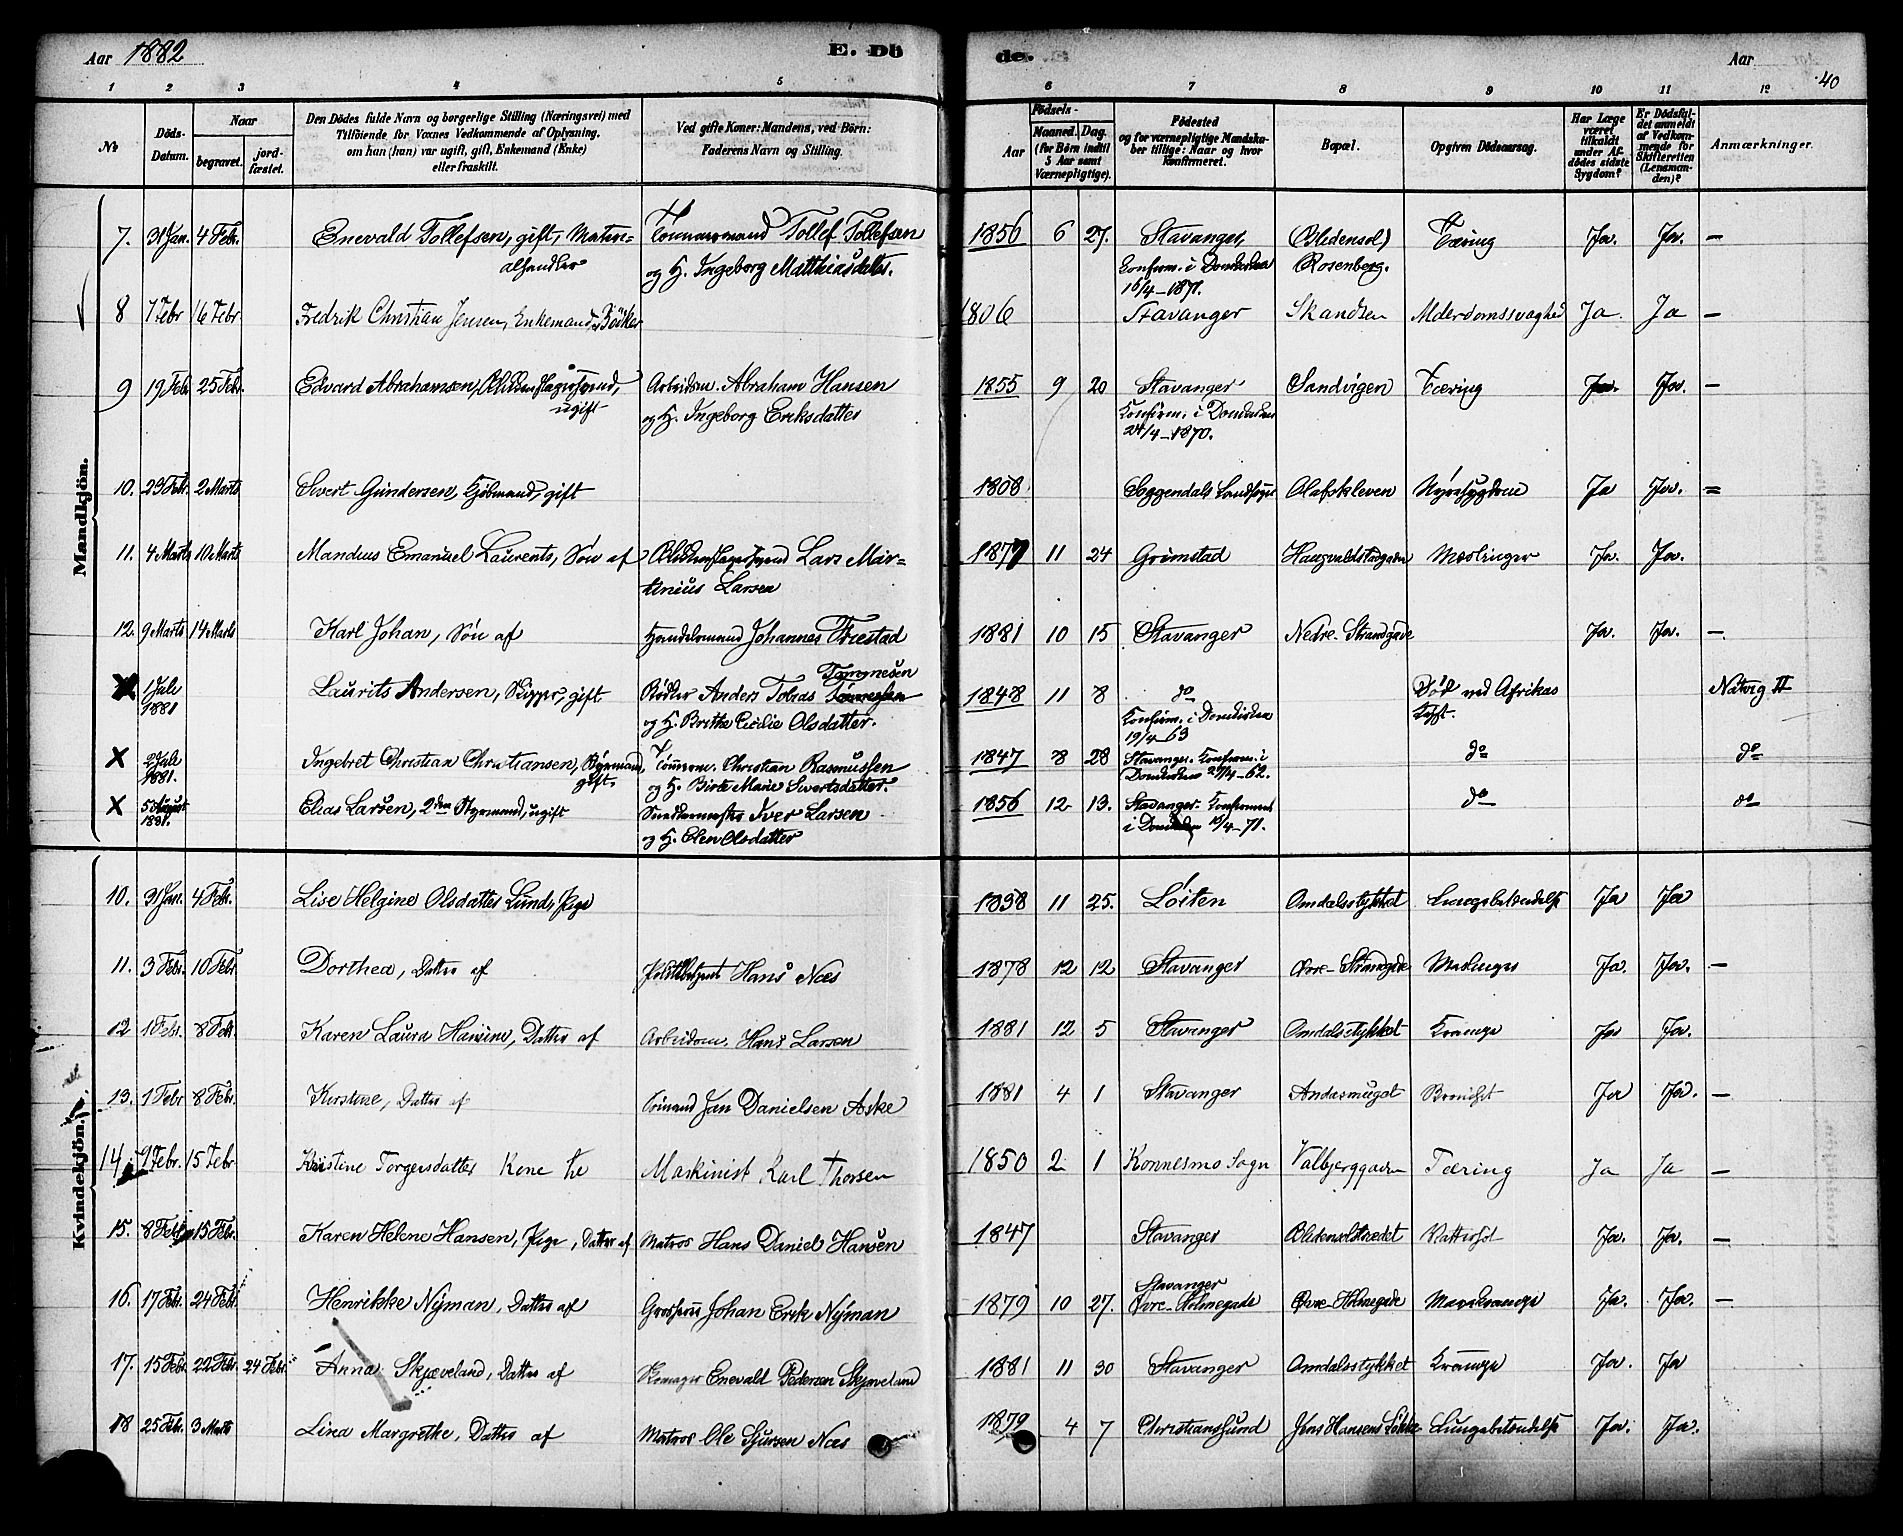 Aar 1882 E. Dö de. Aar 40
1 2 3 4 5 6 7 8 9 10 11 12
№ Döds-Datum. Naar begravet. jord-fæstet. Den Dödes fulde Navn og borgerlige Stilling (Næringsvei) med Tilföiende for Voxnes Vedkommende af Oplysning, om han (hun) var ugift, gift, Enkemand (Enke) eller fraskilt. Ved gifte Koner: Mandens, ved Börn: Faderens Navn og Stilling. Födsels- Aar Maaned. Dag. (for Börn indtil 5 Aar samt Værnepligtige). Födested og for værnepligtige Mandskaber tillige: Naar og hvor konfirmeret. Bopæl. Opgiven Dödsaarsag. Har Læge været tilkaldt under Afdödes sidste Sygdom? Er Dödsfaldet anmeldt af Vedkommende for Skifteretten (Lensmanden)? Anmærkninger.
Mandkjön.
7. 31 Jan. 4 Febr. Enevald Tollefsen, gift, Materi- Tømmermand Tollef Tollefsen 1856 6 27. Stavanger, (Bledensol) Tæring Ja. Ja. —
alhandler og H. Ingeborg Matthiasdatter. Konfirm. i Domkirken Rosenberg.
16/4-1871.
8 7 Febr 16 Febr Fredrik Christian Jensen, Enkemand, Bödker 1806 Stavanger Skandsen Alderdomssvaghed Ja Ja —
9 19 Febr 25 Febr. Edvard Abrahamsen, ugift Arbeidsm. Abraham Hansen 1855 9 20 Stavanger Sandvigen Tæring Ja. Ja. —
og H. Ingeborg Eriksdatter Konfirm. i Domkirken
24/4-1870.
10. 23 Febr. 2 Marts Sivert Gundersen, Kjøbmand, gift 1808 Soggendals Landsogn Olafskleven Nyresygdom Ja Ja. =
11. 4 Marts 10 Marts Mandius Emanuel Laurents, Søn af Lars Mar- 1877 11 24 Grimstad Haugvaldstadgaden Mæslinger Ja. Ja.
tinius Larsen
12. 9 Marts 14 Marts Karl Johan, Søn af Handelsmand Johannes Træstad 1881 10 15 Stavanger Nedre Strandgade Ja. Ja. —
Tønnesen
1 Juli 1881 Laurits Andersen, Skipper, gift Bødker Anders Tobias 1848 11 8 do Død ved Afrikas Kyst. Natvig II
og H. Birthe Cecilie Olsdatter. Konfirm. i Domkirken
19/4-63
X 2 Juli 1881. Ingebret Christian Christiansen, Styrmand, gift. Tømrerm. Christian Rasmussen 1847 8 28 Stavanger. Konfirm. i do do
og H. Birte Marie Sivertsdatter. Domkirken 27/4-62.
X 5 August 1881. Elias Larsen, 2den Styrmand, ugift Iver Larsen 1856 12 13. Stavanger. Konfirmeret do do
og H. Elen Olsdatter i Domkirken 16/4-71.
Kvindekjön.
10. 31 Jan. 4 Febr. Lise Helgine Olsdatter Lund, Pige 1838 11 25. Løiten Omdalsstykket Lungebetændelse Ja Ja
11. 3 Febr. 10 Febr Dorthea, Datter af Politibetjent Hans Næs 1878 12 12 Stavanger Øvre Strandgade Mæslinger Ja. Ja. —
12 1 Febr. 8 Febr Karen Laura Hansine, Datter af Arbeidsm. Hans Larsen 1881 12 5 Stavanger Omdalsstykket Krampe Ja Ja. —
13. 1 Febr 8 Febr. Kirstine, Datter af Sømand Jan Danielsen Aske 1881 4 1 Stavanger Andasmuget Bronchit Ja Ja. —
14. 9 Febr. 15 Febr Kristine Torgersdatter Kone til Maskinist Karl Thorsen 1850 2 1 Konnesmo Sogn Valbjerggaden Tæring Ja Ja —
15. 8 Febr 15 Febr. Karen Helene Hansen, Pige, Datter af Matros Hans Daniel Hansen 1847 Stavanger Blidensolstrædet Vattersot Ja. Ja. —
16. 17 Febr. 24 Febr. Henrikke Nÿman, Datter af Grosserer Johan Erik Nÿman 1879 10 27. Stavanger Øvre Holmegade Øvre Holmegade Mavekrampe Ja. Ja. —
17. 15 Febr. 22 Febr 24 Febr. Anna Skjæveland, Datter af Enevald Pedersen Skjæveland 1881 11 30 Stavanger Omdalsstykket Krampe Ja. Ja
18 25 Febr. 3 Marts Lina Margrethe, Datter af Matros Ole Sjursen Næs 1879 4 7 Christianssund Jens Hansens Løkke Lungebetændelse Ja. Ja.